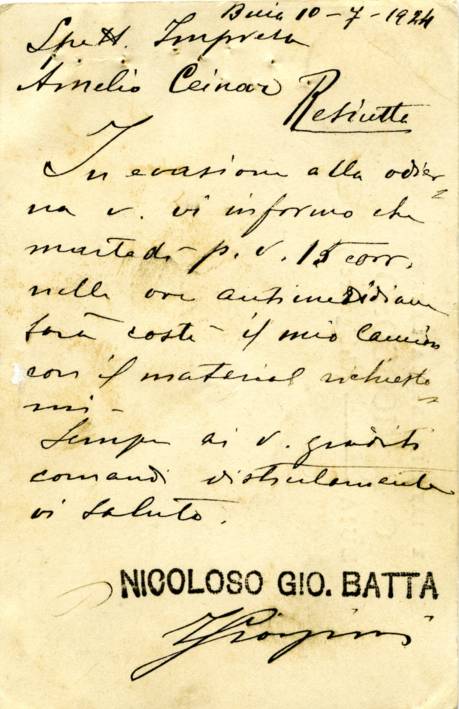 Buia 10-7-1924
Spett. Impresa
Amelio Ceinar
Resiutta
In evasione alla odier=
na v. vi informo che
martedi p. v. 15 corr.
nelle ore antimeridiane
sarà costi il mio camion
con il material richiesto=
mi -
Sempre ai v. graditi
comandi distintamente
vi saluto.
NICOLOSO GIO. BATTA